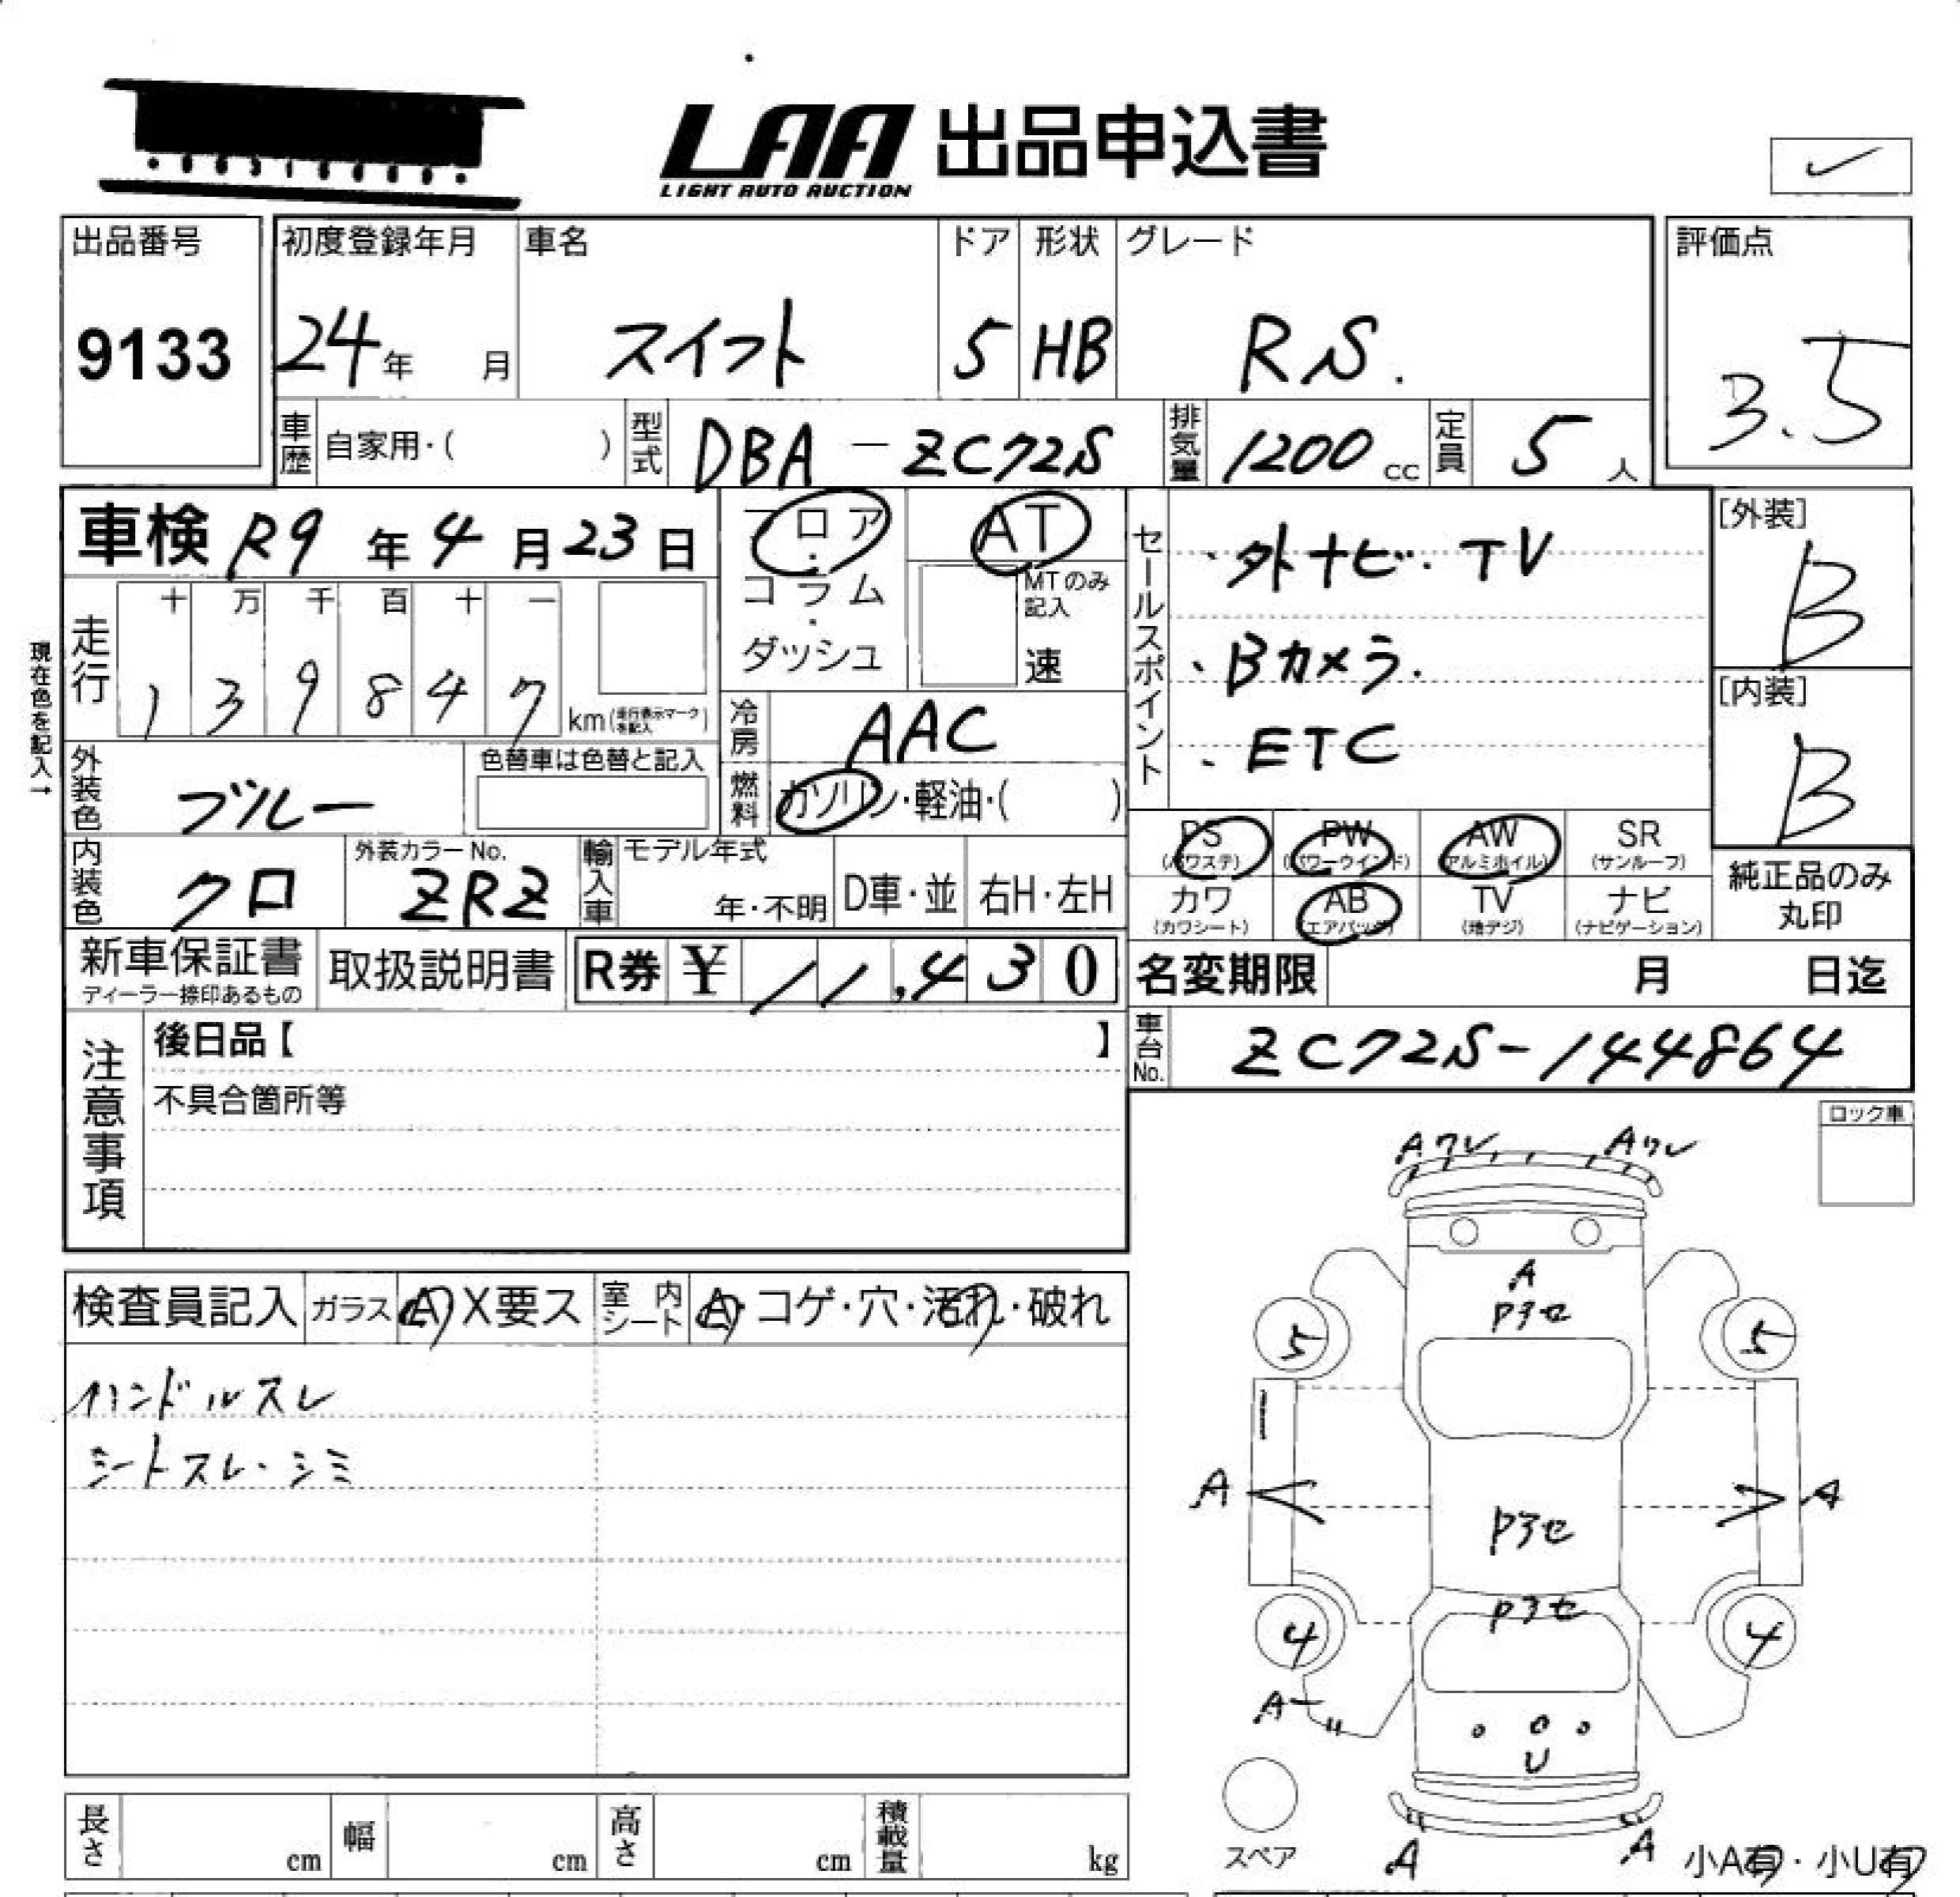 LAA 出品申込書
LIGHT AUTO AUCTION
出品番号 初度登録年月 車名 ドア 形状 グレード 評価点
9133 24年 月 スイフト 5 HB RS. 3.5
車歴 自家用・( ) 型式 DBA-ZC72S 排気量 1200cc 定員 5人
車検 R9年4月23日 フロア・コラム・ダッシュ AT
MTのみ記入 速
セールスポイント
・外ナビ・TV
・Bカメラ.
・ETC
[外装] B
[内装] B
現在色を記入→
走行 十 万 千 百 十 一
1 3 9 8 4 7 km(走行表示マークを記入)
冷房 AAC
外装色 ブルー 色替車は色替と記入
燃料 ガソリン・軽油・( )
内装色 クロ 外装カラーNo. ZRZ 輸入車 モデル年式 年・不明 D車・並 右H・左H
PS (パワステ) PW (パワーウインド) AW (アルミホイル) SR (サンルーフ)
カワ (カワシート) AB (エアバッグ) TV (地デジ) ナビ (ナビゲーション)
純正品のみ丸印
新車保証書 ディーラー捺印あるもの 取扱説明書 R券 ¥ 11,430
名変期限 月 日迄
車台No. ZC72S-144864
注意事項
後日品【 】
不具合箇所等
ロック車
検査員記入 ガラス A X要ス 室内シート A・コゲ・穴・汚れ・破れ
ハンドルスレ
シートスレ・シミ
Aワレ Aワレ
A
Pヲセ
5 5
A A
Pヲセ
Pヲセ
4 4
A
U
スペア
A A
小A有・小U有
長さ cm 幅 cm 高さ cm 積載量 kg